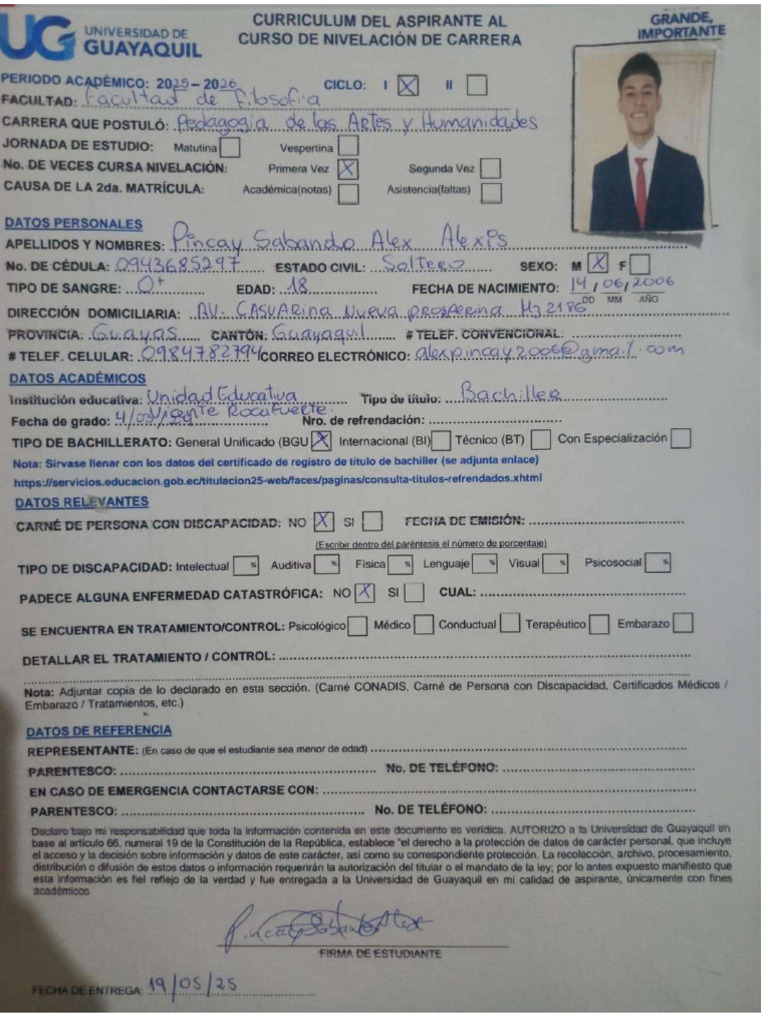 UG UNIVERSIDAD DE GUAYAQUIL
CURRICULUM DEL ASPIRANTE AL
CURSO DE NIVELACIÓN DE CARRERA
GRANDE,
IMPORTANTE
PERIODO ACADÉMICO: 2025-2026 CICLO: I X II
FACULTAD: Facultad de Filosofia
CARRERA QUE POSTULÓ: Pedagogia de las Artes y Humanidades
JORNADA DE ESTUDIO: Matutina Vespertina
No. DE VECES CURSA NIVELACIÓN: Primera Vez X Segunda Vez
CAUSA DE LA 2da. MATRÍCULA: Académica(notas) Asistencia(faltas)
DATOS PERSONALES
APELLIDOS Y NOMBRES: Pincay Sabando Alex Alexis
No. DE CÉDULA: 0943685297 ESTADO CIVIL: Soltero SEXO: M X F
TIPO DE SANGRE: O+ EDAD: 18 FECHA DE NACIMIENTO: 14/06/2006
DD MM AÑO
DIRECCIÓN DOMICILIARIA: AV. CASUARINA NUEVA PROSPERINA MZ 2186
PROVINCIA: Guayas CANTÓN: Guayaquil # TELEF. CONVENCIONAL:
# TELEF. CELULAR: 0984782794 CORREO ELECTRÓNICO: alexpincay2006@gmail.com
DATOS ACADÉMICOS
Institución educativa: Unidad Educativa Tipo de título: Bachiller
Vicente Rocafuerte
Fecha de grado: Nro. de refrendación:
TIPO DE BACHILLERATO: General Unificado (BGU X Internacional (BI) Técnico (BT) Con Especialización
Nota: Sírvase llenar con los datos del certificado de registro de título de bachiller (se adjunta enlace)
https://servicios.educacion.gob.ec/titulacion25-web/faces/paginas/consulta-titulos-refrendados.xhtml
DATOS RELEVANTES
CARNÉ DE PERSONA CON DISCAPACIDAD: NO X SI FECHA DE EMISIÓN:
(Escribir dentro del paréntesis el número de porcentaje)
TIPO DE DISCAPACIDAD: Intelectual % Auditiva % Física % Lenguaje % Visual % Psicosocial %
PADECE ALGUNA ENFERMEDAD CATASTRÓFICA: NO X SI CUAL:
SE ENCUENTRA EN TRATAMIENTO/CONTROL: Psicológico Médico Conductual Terapéutico Embarazo
DETALLAR EL TRATAMIENTO / CONTROL:
Nota: Adjuntar copia de lo declarado en esta sección. (Carné CONADIS, Carné de Persona con Discapacidad, Certificados Médicos /
Embarazo / Tratamientos, etc.)
DATOS DE REFERENCIA
REPRESENTANTE: (En caso de que el estudiante sea menor de edad)
PARENTESCO: No. DE TELÉFONO:
EN CASO DE EMERGENCIA CONTACTARSE CON:
PARENTESCO: No. DE TELÉFONO:
Declaro bajo mi responsabilidad que toda la información contenida en este documento es verídica. AUTORIZO a la Universidad de Guayaquil en
base al artículo 66, numeral 19 de la Constitución de la República, establece "el derecho a la protección de datos de carácter personal, que incluye
el acceso y la decisión sobre información y datos de este carácter, así como su correspondiente protección. La recolección, archivo, procesamiento,
distribución o difusión de estos datos o información requerirán la autorización del titular o el mandato de la ley; por lo antes expuesto manifiesto que
esta información es fiel reflejo de la verdad y fue entregada a la Universidad de Guayaquil en mi calidad de aspirante, únicamente con fines
académicos
Pincay Sabando Alex
FIRMA DE ESTUDIANTE
FECHA DE ENTREGA: 19/05/25